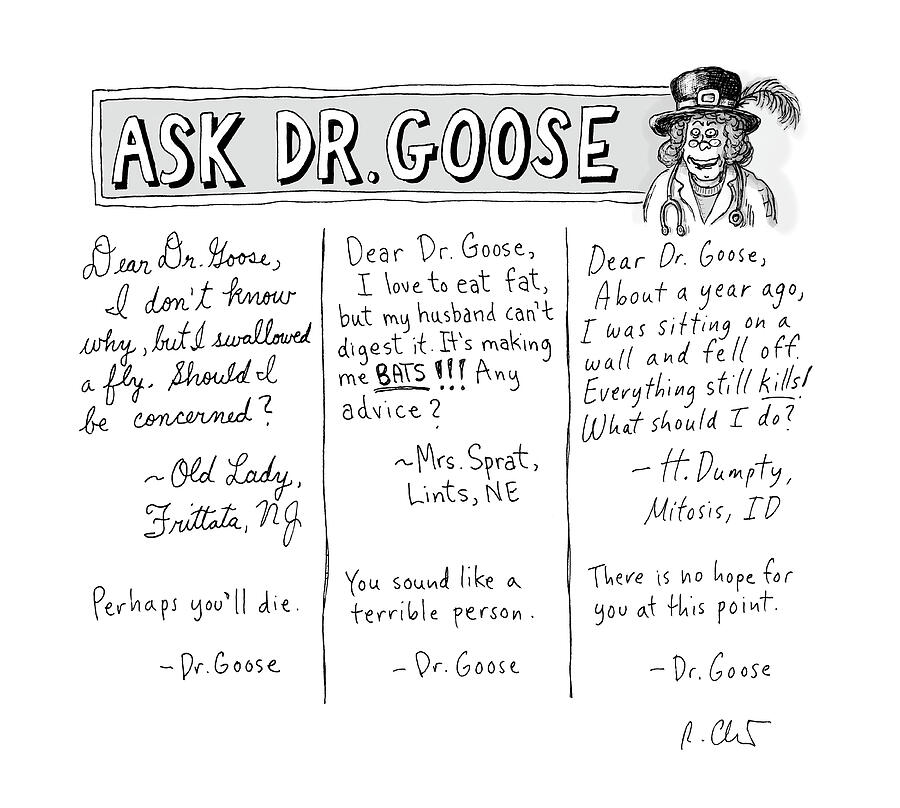 ASK DR. GOOSE
Dear Dr. Goose,
I don't know
why, but I swallowed
a fly. Should I
be concerned?
~Old Lady,
Frittata, NJ
Perhaps you'll die.
-Dr. Goose
Dear Dr. Goose,
I love to eat fat,
but my husband can't
digest it. It's making
me BATS!!! Any
advice?
~Mrs. Sprat,
Lints, NE
You sound like a
terrible person.
-Dr. Goose
Dear Dr. Goose,
About a year ago,
I was sitting on a
wall and fell off.
Everything still kills!
What should I do?
-H. Dumpty,
Mitosis, ID
There is no hope for
you at this point.
-Dr. Goose